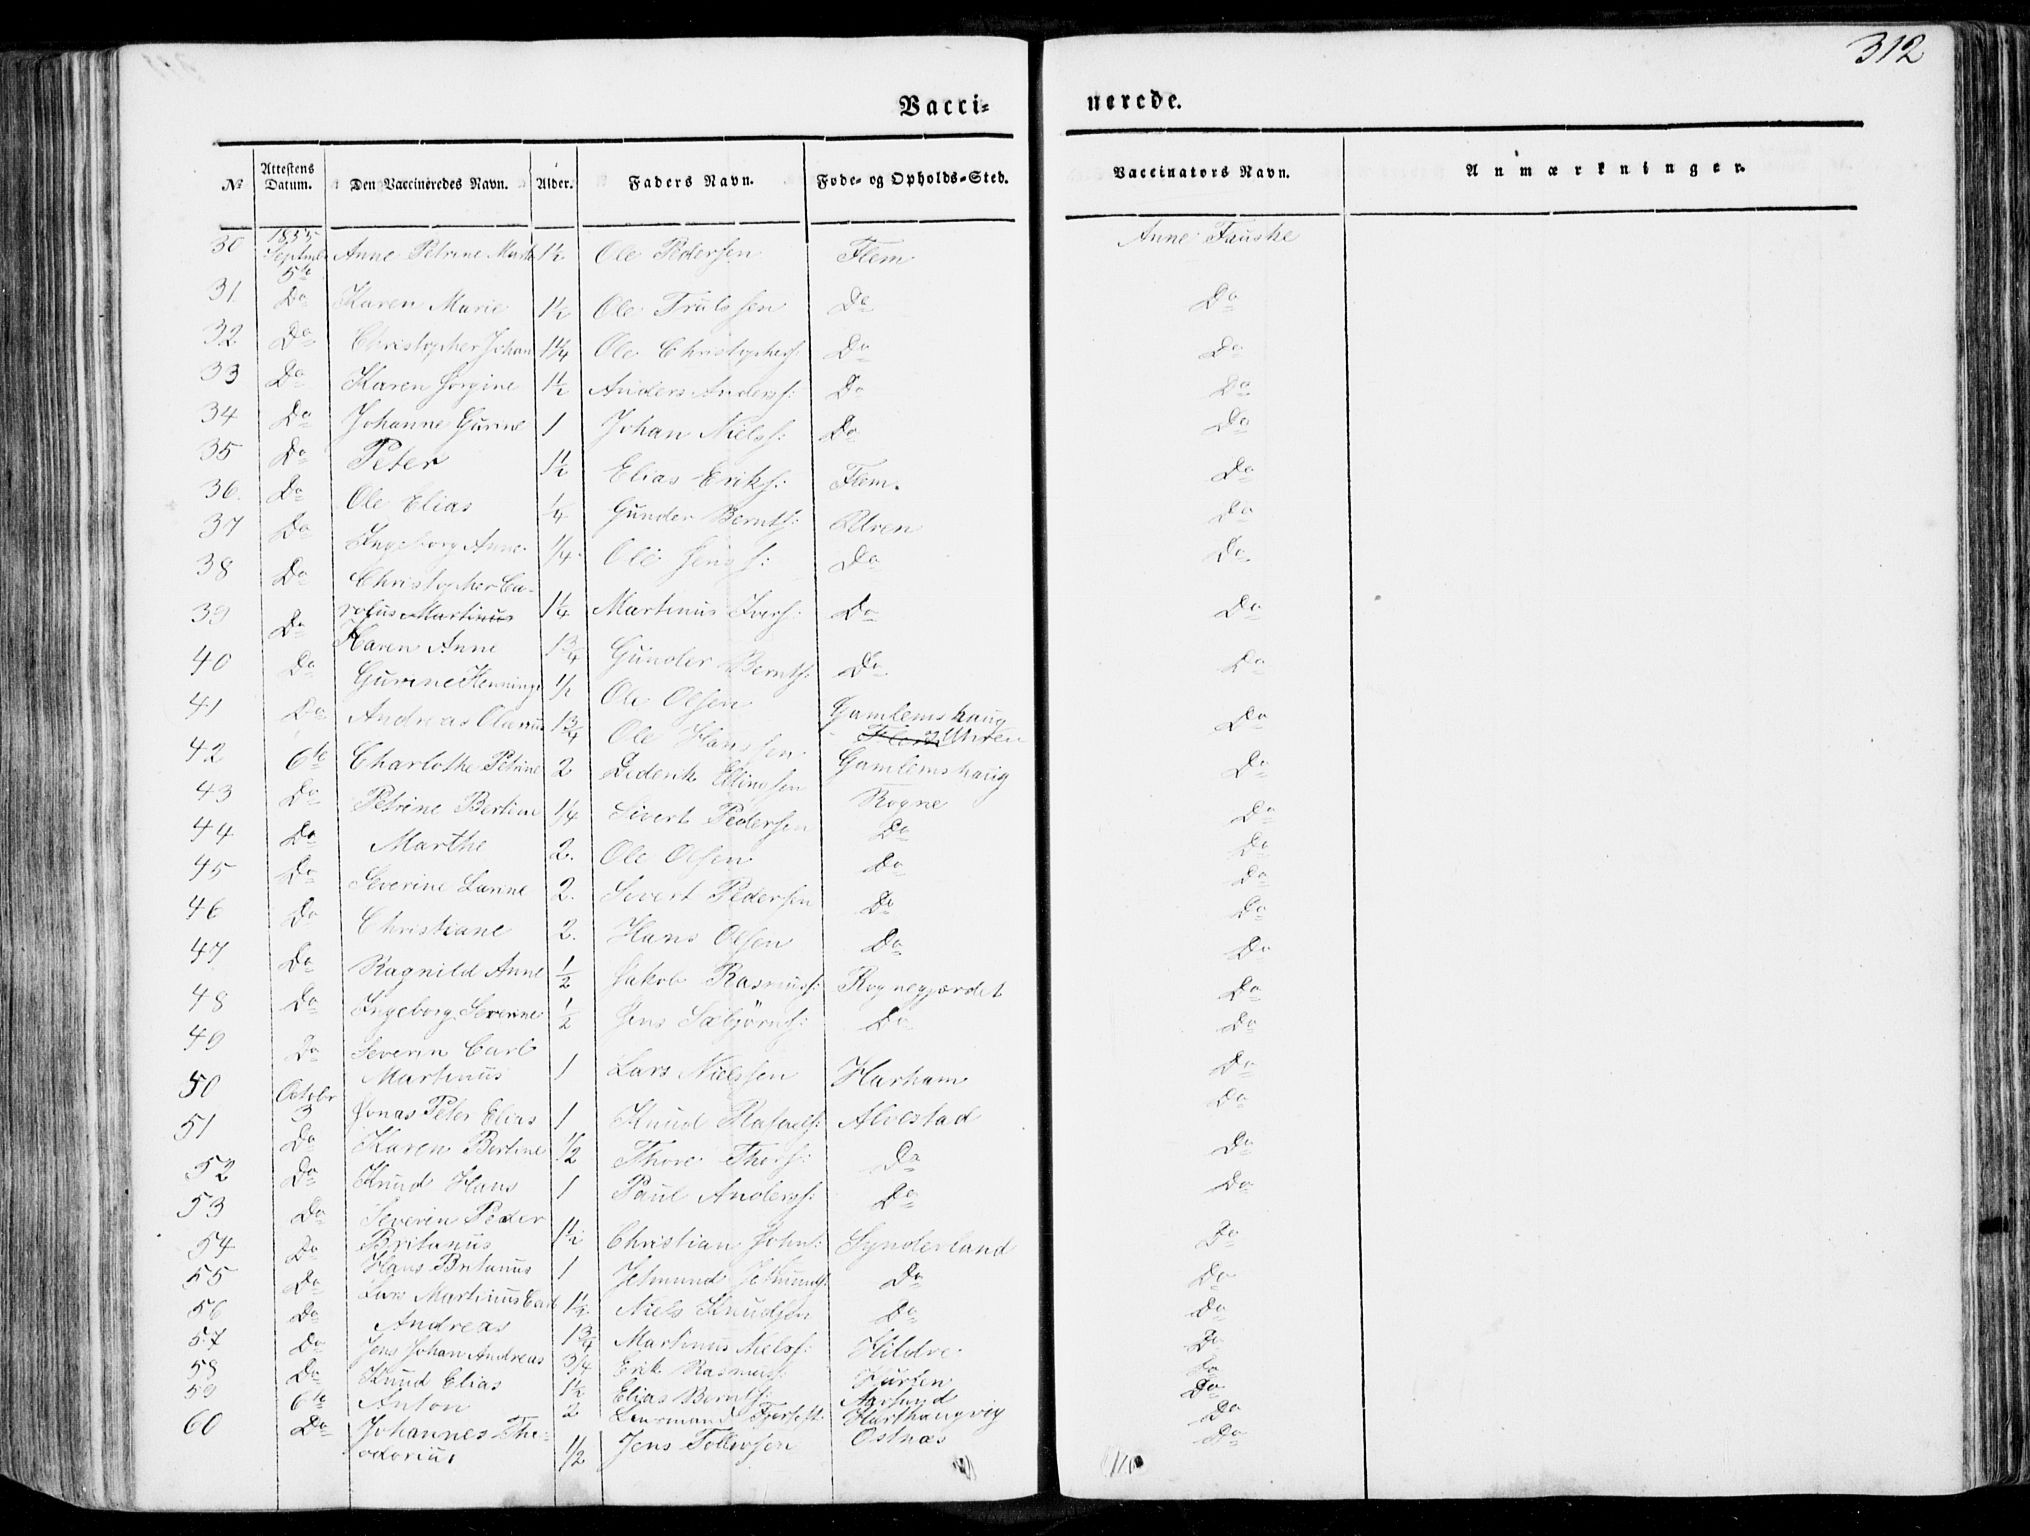 312
Vacci- nerede.
No Attestens Datum. Den Vaccineredes Navn. Alder. Faders Navn. Føde- og Opholds-Sted. Vaccinators Navn. Anmærkninger.
1855
30 Septmbr 5te Anne Petrine Marte 1½ Ole Pedersen Flem Anne Fauske
31 Do Karen Marie 1½ Ole Trulssen Do Do
32 Do Christopher Johan 1¼ Ole Christophers: Do Do
33 Do Karen Jørgine 1½ Anders Anders: Do Do
34 Do Johanne Gurine 1 Johan Niels: Do Do
35 Do Peter 1½ Elias Eriks: Flem. Do
36. Do Ole Elias ¼ Gunder Bernts: Uren Do
37 Do Ingeborg Anne ¼ Ole Jens: Do Do
38 Do Christopher Ca-
rolus Martinus 1¼ Martinus Ivers: Do Do
39 Do Karen Anne 1¾ Gunder Bernts: Do Do
40 Do Gurine Henninge ½ Ole Olsen Gamlemshaug
41 Do Andreas Olanus 1¾ Ole Hanssen Flem Uhren Do
42 6te Charlothe Petrine 2 Diderik Ellingsen Gamlemshaug Do
43 Do Petrine Bertine ¼ Sivert Pedersen Rogne Do
44 Do Marthe 2. Ole Olsen Do Do
45 Do Severine Larine 2. Sivert Pedersen Do Do
46 Do Christiane 2. Hans Olsen Do Do
47 Do Ragnild Anne ½ Jakob Rasmus: Rognegjærdet Do
48 Do Ingeborg Severine ½ Jens Sæbjørns: Do Do
49 Do Severin Carl
Martinus 1 Lars Nielssen Harham Do
50 Octobr 3 Jonas Peter Elias 1 Knud Rafaels: Alvestad Do
51 Do Karen Bertine ½ Thore Thors: Do Do
52 Do Knud Hans 1 Paul Anders: Do Do
53 Do Severin Peder
Britanus 1½ Christian Johns: Synderland Do
54 Do Hans Britanus 1 Jetmund Jetmunds: Do Do
55 Do Lars Martinus Carl 1½ Niels Knudsen Do Do
56 Do Andreas 1¾ Martinus Niels: Hildre Do
57 Do Jens Johan Andreas ¾ Erik Rasmus: Do
58 Do Knud Elias 1½ Elias Bernts: Do
59 6te Anton 2 Do
60 Do Johannes The-
odorius ½ Jens Tollevsen Ostnæs Do